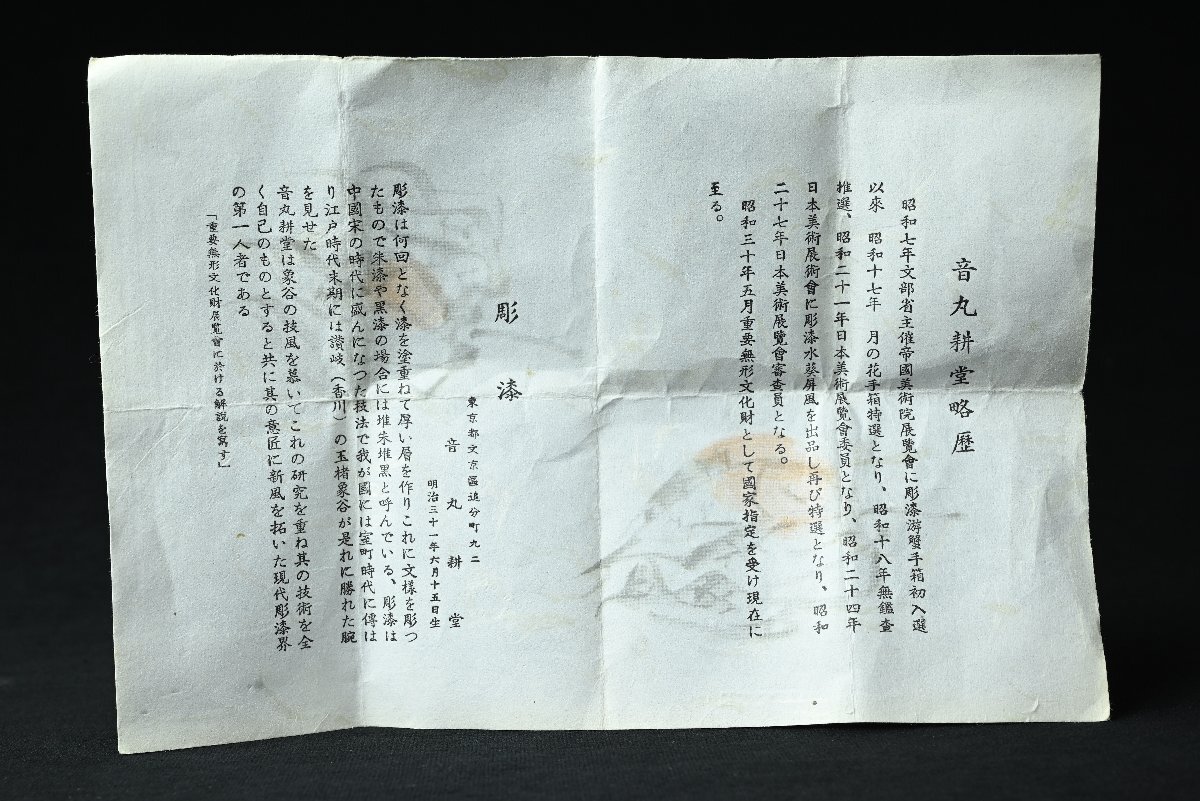 音丸耕堂略歴
昭和七年文部省主催帝國美術院展覽會に彫漆游蟹手箱初入選
以來　昭和十七年　月の花手箱特選となり、昭和十八年無鑑査
推選、昭和二十一年日本美術展覽會委員となり、昭和二十四年
日本美術展術會に彫漆水葵屏風を出品し再び特選となり、昭和
二十七年日本美術展覽會審査員となる。
昭和三十年五月重要無形文化財として國家指定を受け現在に
至る。
彫漆
東京都文京區追分町九二
音丸耕堂
明治三十一年六月十五日生
彫漆は何回となく漆を塗重ねて厚い層を作りこれに文様を彫つ
たもので朱漆や黒漆の場合には堆朱堆黒と呼んでいる、彫漆は
中國宋の時代に盛んになつた技法で我が國には室町時代に傳は
り江戸時代末期には讃岐（香川）の玉楮象谷が是れに勝れた腕
を見せた
音丸耕堂は象谷の技風を慕いてこれの研究を重ね其の技術を全
く自己のものとすると共に其の意匠に新風を拓いた現代彫漆界
の第一人者である
「重要無形文化財展覧會に於ける解説を寫す」